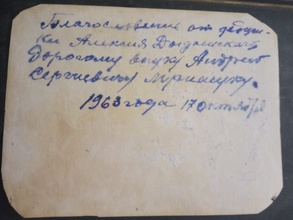 Благословение от дедуш-
ки Алексия
Дорогому внуку Андрею
Сергиевичу
1963 года 17 октября